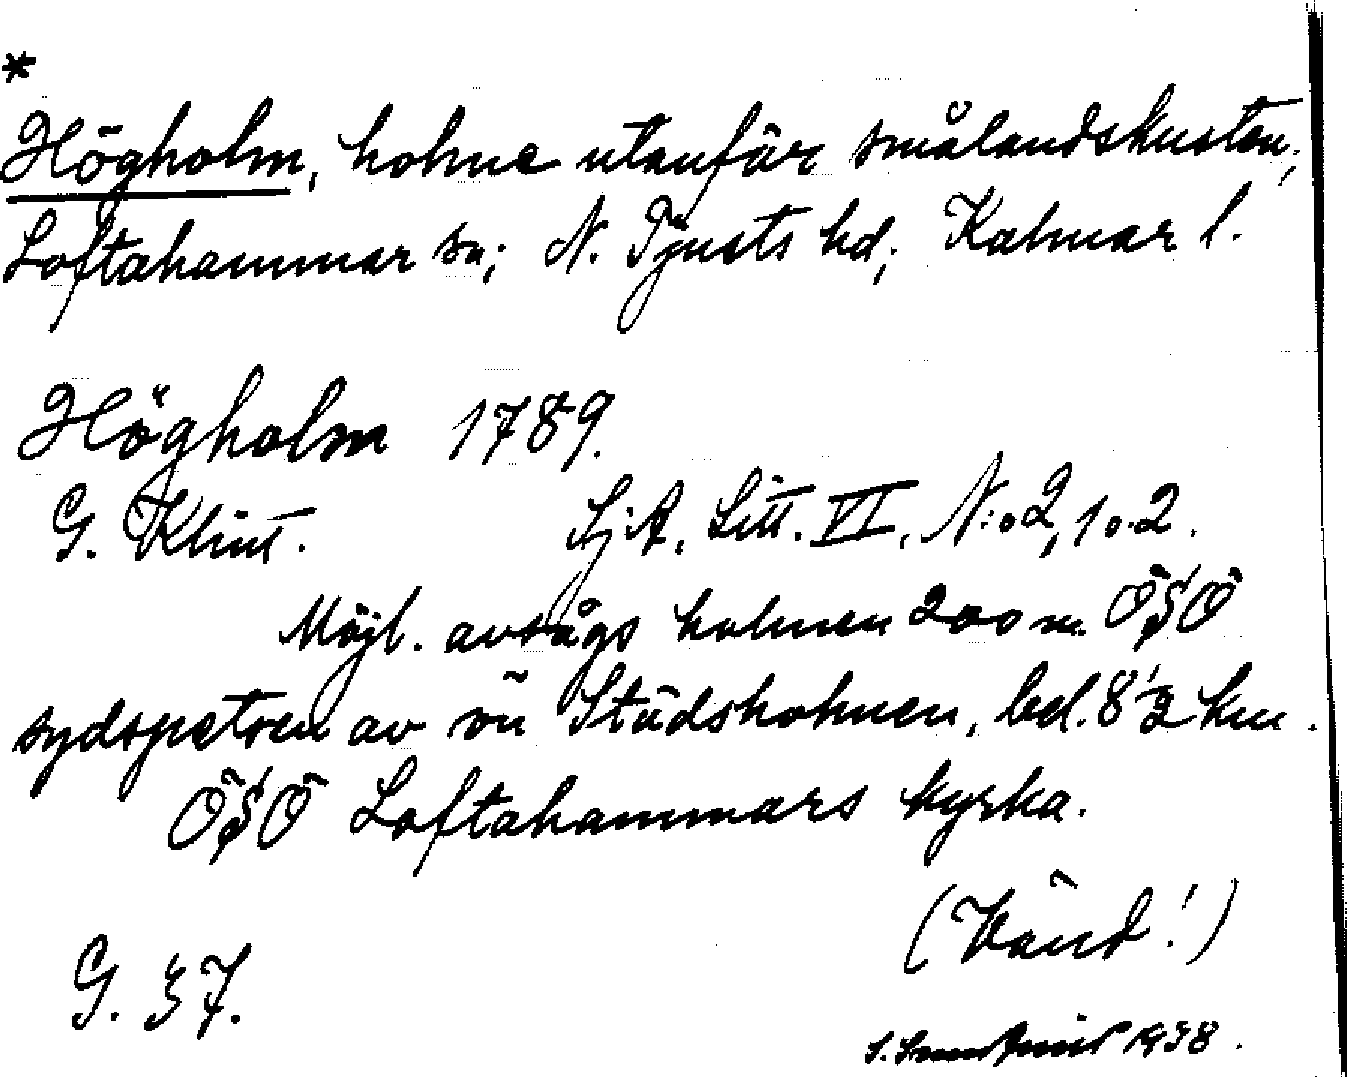 *
Högholm, holme utanför smålandskusten,
Loftahammar sn; N. Tjusts hd; Kalmar l.
Högholm 1789.
G. Klint. SjA. Litt. VI, N:o 2, 1 o. 2.
Möjl. avsågs holmen 200 m. ÖSÖ
sydspetsen av ön Städsholmen, bel. 8 1/2 km.
ÖSÖ Loftahammars kyrka.
(Vänd!)
G. 37.
1938.